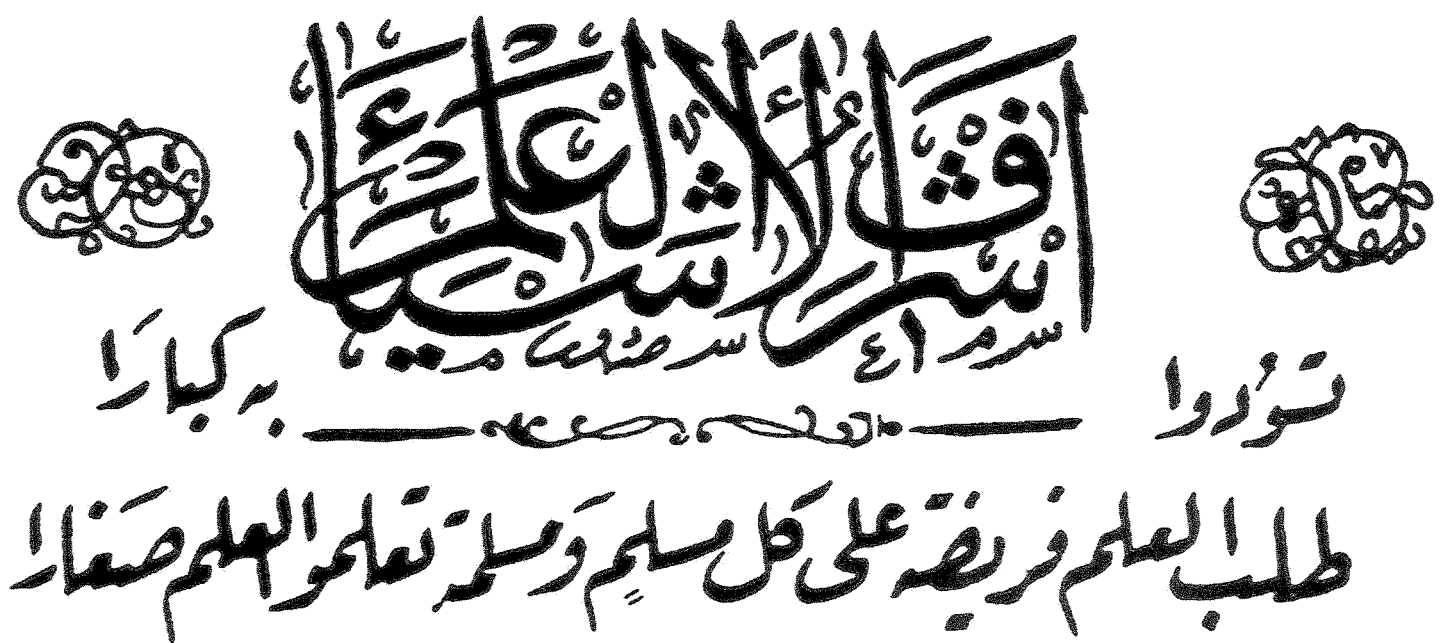 اشرف الاشياء العلم
تسوُدوا به كبارَا
طلب العلم فريضة على كل مسلمٍ وَمسلمة تعلموا العلم صَغارا